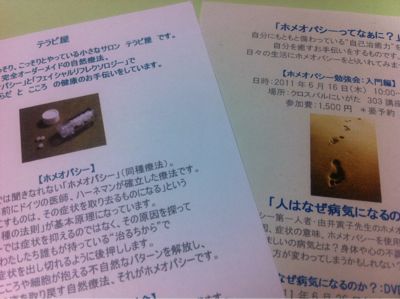 テラピ屋
っそり、こっそりとやっている小さなサロン テラピ屋 です。
完全オーダーメイドの自然療法、
パシー」と「フェイシャルリフレクソロジー」で
らだ と こころ の健康のお手伝いをしています。
【ホメオパシー】
では聞きなれない「ホメオパシー」(同種療法)。
前にドイツの医師、ハーネマンが確立した療法です。
こすものは、その症状を取り去るものになるという
種の法則」が基本原理になっています。
ーでは症状を抑えるのではなく、その原因を探って
わたしたち誰もが持っている"治るちから"で
症状を出し切れるように後押しします。
こころや細胞が抱える不自然なパターンを解放し、
を取り戻す自然療法、それがホメオパシーです。
「ホメオパシーってなぁに?」
自分にもともと備わっている"自己治癒力"を
自分を癒すお手伝いをするものです。
日々の生活にホメオパシーをとりいれてみま
【ホメオパシー勉強会：入門編】
日時：2011年6月16日(木) 10:00~
場所：クロスパルにいがた 303 講座
参加費：1,500円 *要予約
「人はなぜ病気になるの
シー第一人者・由井寅子先生のホメオ
、症状の意味、ホメオパシーを使用
しい病気とは? 身体や心の不調
方が変わってしまうかもしれない?
なぜ病気になるのか?：DV